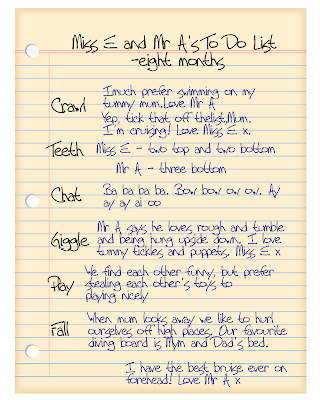 Miss E and Mr A's To Do List
-eight months
Crawl
I much prefer swimming on my
tummy mum. Love Mr A
Yep, tick that off the list, Mum.
I'm cruising! Love Miss E x.
Teeth
Miss E - two top and two bottom
Mr A - three bottom
Chat
Ba ba ba ba. Bow bow ow ow. Ay
ay ay ai oo
Giggle
Mr A says he loves rough and tumble
and being hung upside down. I love
tummy tickles and puppets, Miss E x
Play
We find each other funny, but prefer
stealing each other's toys to
playing nicely
Fall
When mum looks away we like to hurl
ourselves off high places. Our favourite
diving board is Mum and Dad's bed.
I have the best bruise ever on
forehead! Love Mr A x